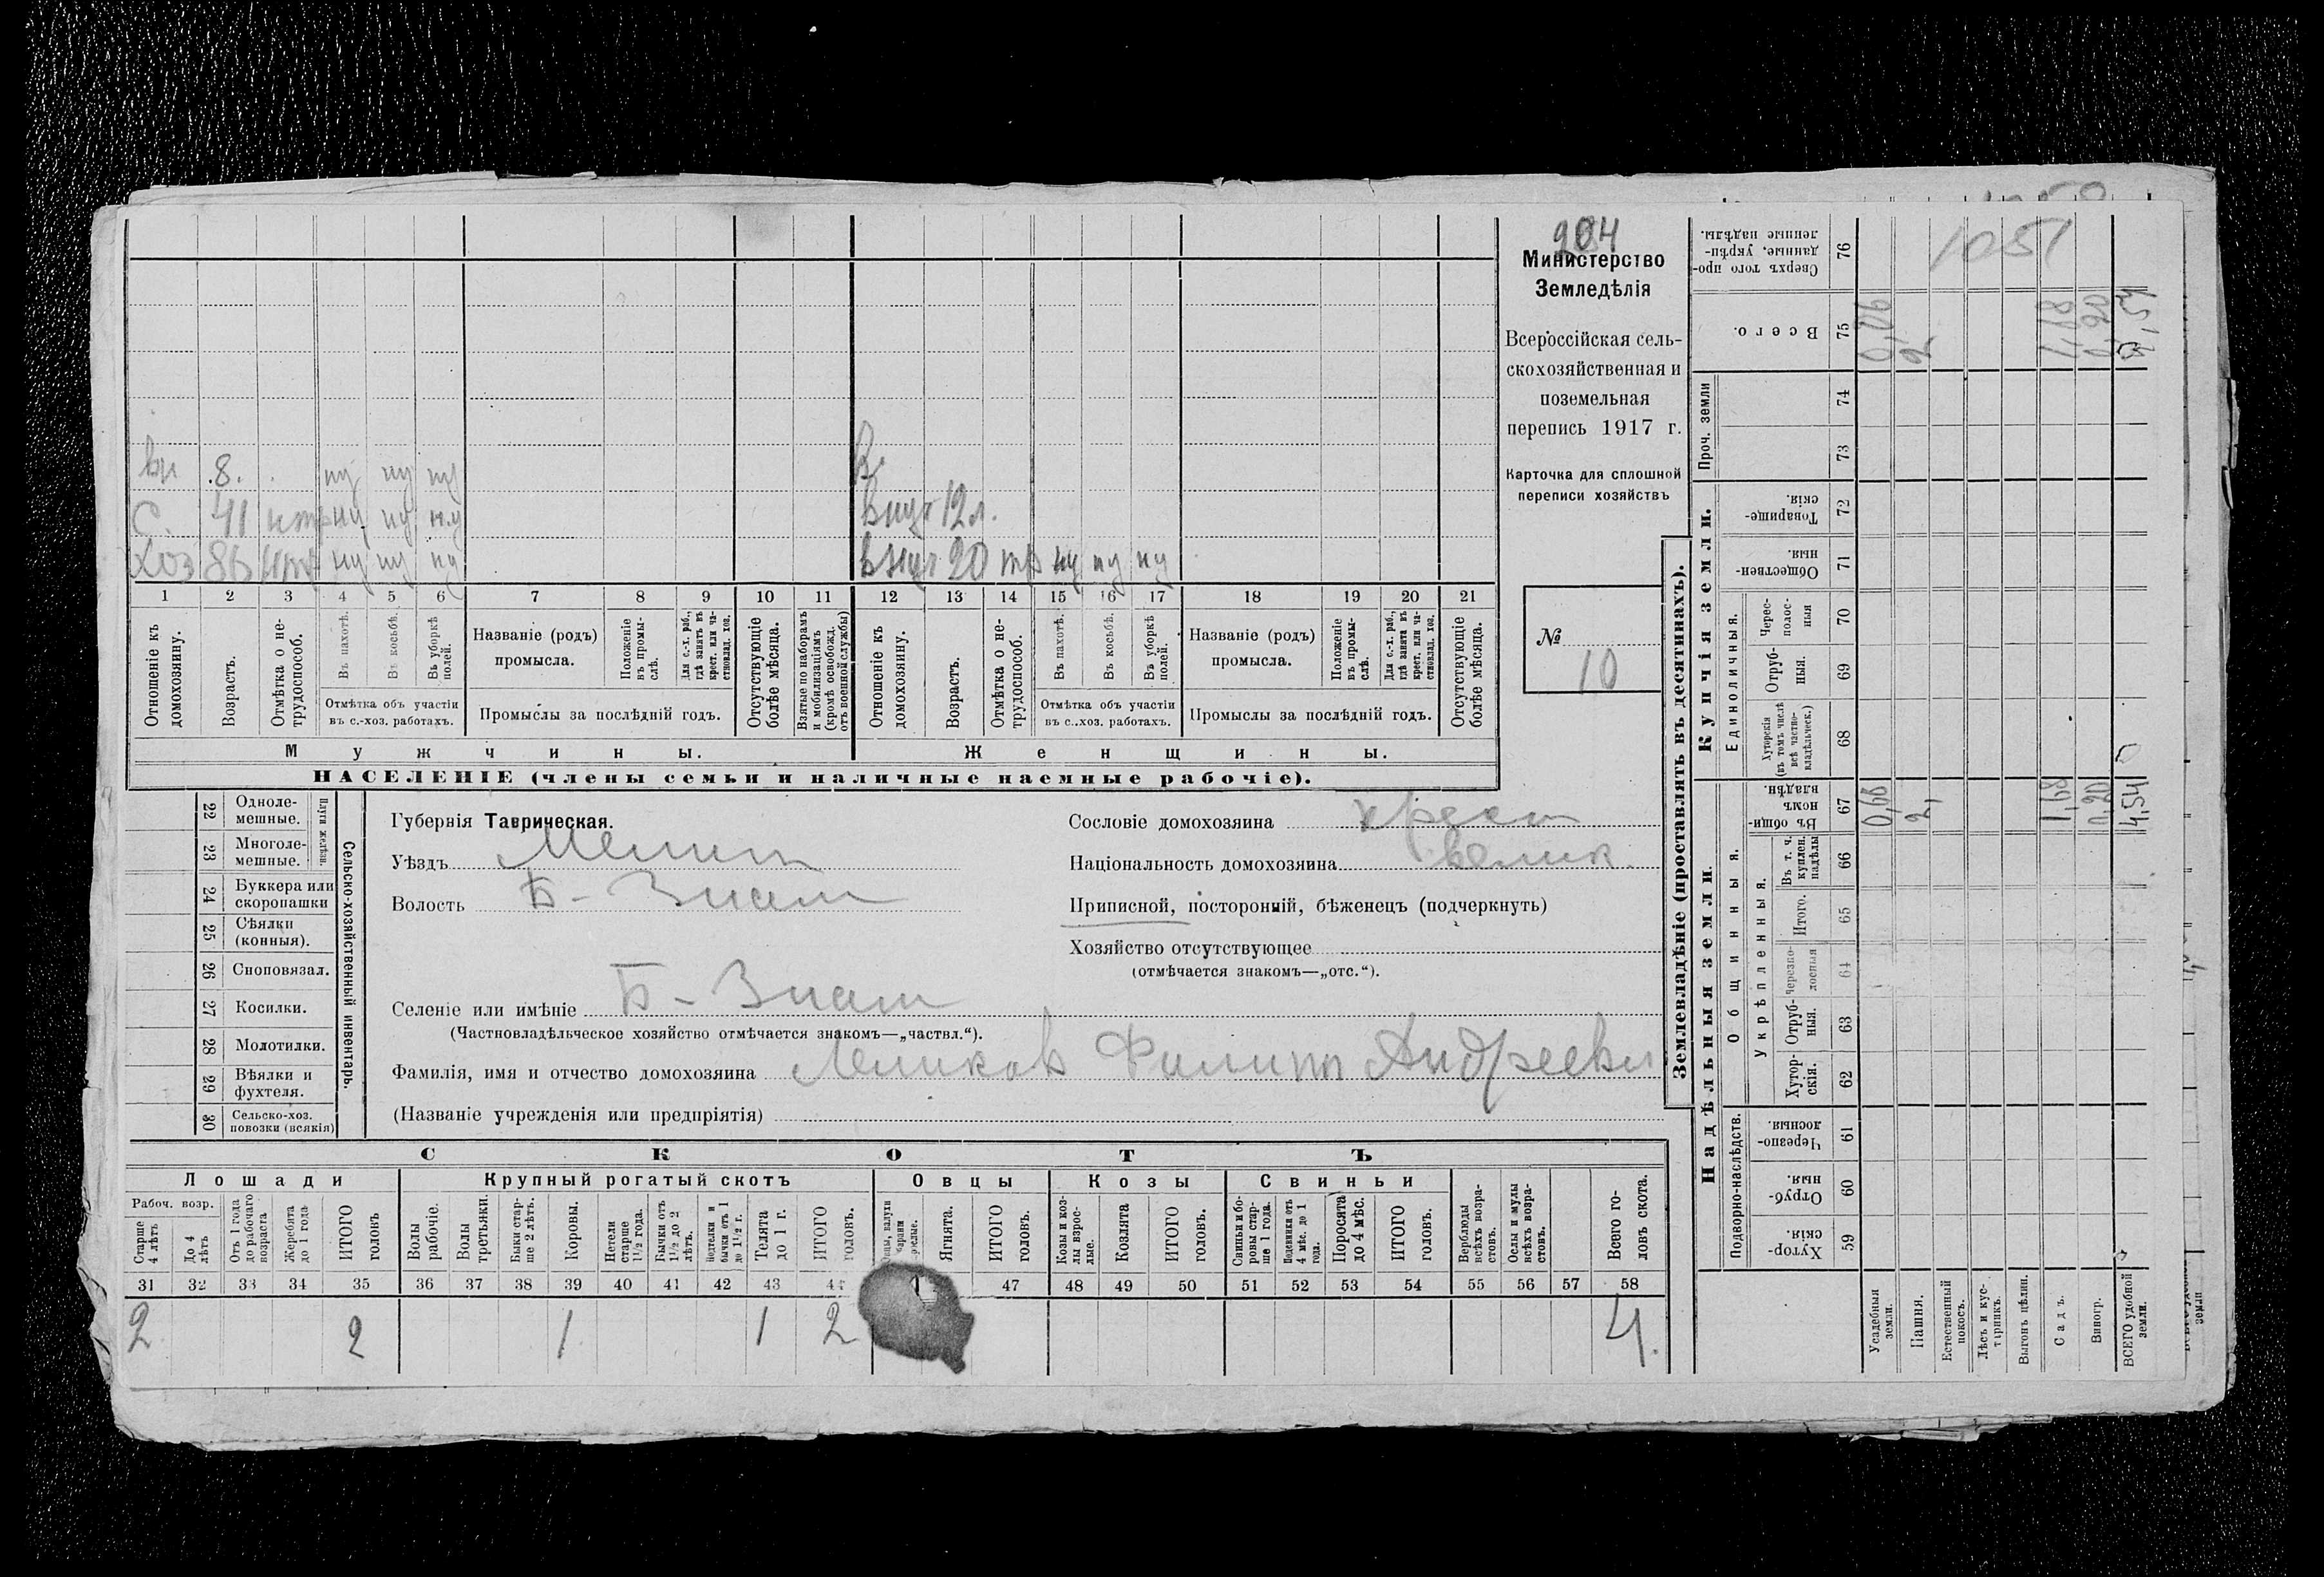 204
Министерство
Земледѣлія
Всероссійская сель-
скохозяйственная и
поземельная
перепись 1917 г.
Карточка для сплошной
переписи хозяйствъ
№ 10
1051
вн 8. ну ну ну
С. 41 нтр ну ну ну
Хоз 86 нтр ну ну ну
внуч 12 л.
внуч 20 тр ну ну ну
1 2 3 4 5 6 7 8 9 10 11 12 13 14 15 16 17 18 19 20 21
Отношеніе къ домохозяину.
Возрастъ.
Отмѣтка о не-трудоспособ.
Въ пахотѣ.
Въ косьбѣ.
Въ уборкѣ полей.
Отмѣтка объ участіи въ с.-хоз. работахъ.
Названіе (родъ) промысла.
Положеніе въ промы-слѣ.
Для с.-х. раб., гдѣ занятъ въ крест. или ча-стновлад. хоз.
Промыслы за послѣдній годъ.
Отсутствующіе болѣе мѣсяца.
Взятые по наборамъ и мобилизаціямъ (кромѣ освобожд. отъ военной службы)
Отношеніе къ домохозяину.
Возрастъ.
Отмѣтка о не-трудоспособ.
Въ пахотѣ.
Въ косьбѣ.
Въ уборкѣ полей.
Отмѣтка объ участіи въ с..хоз. работахъ.
Названіе (родъ) промысла.
Положеніе въ промы-слѣ.
Для с.-х. раб., гдѣ занята въ крест. или ча-стновлад. хоз.
Промыслы за послѣдній годъ.
Отсутствующіе болѣе мѣсяца.
Мужчины. Женщины.
НАСЕЛЕНІЕ (члены семьи и наличные наемные рабочіе).
22 Одноле-мешные.
23 Многоле-мешные.
Плуги желѣзн.
24 Буккера или скоропашки
25 Сѣялки (конныя).
26 Сноповязал.
27 Косилки.
28 Молотилки.
29 Вѣялки и фухтеля.
30 Сельско-хоз. повозки (всякія)
Сельско-хозяйственный инвентарь.
Губернія Таврическая.
Уѣздъ Мелит
Волость Б-Знам
Селеніе или имѣніе Б-Знам
(Частновладѣльческое хозяйство отмѣчается знакомъ—„частвл.“).
Фамилія, имя и отчество домохозяина Филипп Андреевич
(Названіе учрежденія или предпріятія)
Сословіе домохозяина крест
Національность домохозяина велик.
Приписной, посторонній, бѣженецъ (подчеркнуть)
Хозяйство отсутствующее
(отмѣчается знакомъ—„отс.“).
СКОТЪ
Лошади Крупный рогатый скотъ Овцы Козы Свиньи
Рабоч. возр.
Старше 4 лѣтъ
До 4 лѣтъ
Отъ 1 года до рабочаго возраста
Жеребята до 1 года
ИТОГО головъ
Волы рабочіе.
Волы третьяки.
Быки стар-ше 2 лѣтъ.
Коровы.
Нетели старше 1½ года.
Бычки отъ 1½ до 2 лѣтъ.
Подтелки и бычки отъ 1 до 1½ г.
Телята до 1 г.
ИТОГО головъ.
Ягнята.
ИТОГО головъ.
Козы и коз-лы взрос-лые.
Козлята
ИТОГО головъ.
Свиньи и бо-ровы стар-ше 1 года.
Подсвинки отъ 4 мѣс. до 1 года.
Поросята до 4 мѣс.
ИТОГО головъ.
Верблюды всѣхъ возра-стовъ.
Ослы и мулы всѣхъ возра-стовъ.
Всего го-ловъ скота.
31 32 33 34 35 36 37 38 39 40 41 42 43 44 47 48 49 50 51 52 53 54 55 56 57 58
2 2 1 1 2 4.
Землевладѣніе (проставлять въ десятинахъ).
Надѣльныя земли. Купчія земли. Проч. земли
Подворно-наслѣдств.
Общинныя.
Укрѣпленныя.
Единоличныя.
Хутор-скія. 59
Отруб-ныя. 60
Черезпо-лосныя. 61
Хутор-скія. 62
Отруб-ныя. 63
Черезпо-лосныя 64
Итого. 65
Въ т. ч. куплен. надѣлы 66
Въ общи-номъ владѣн. 67
Хуторскія (въ томъ числѣ всѣ частно-владѣльческ.) 68
Отруб-ныя. 69
Черес-полос-ныя 70
Обществен-ныя 71
Товарище-скія. 72
73
74
Всего. 75
Сверхъ того про-данные, укрѣп-ленные надѣлы. 76
Усадебныя земли. 0,66
Пашня. 2, 2
Естественный покосъ.
Лѣсъ и кус-тарникъ.
Выгонъ цѣлин.
Садъ. 1,68 1,68
Виногр. 0,20 0,20
ВСЕГО удобной земли. 4,54 4,54